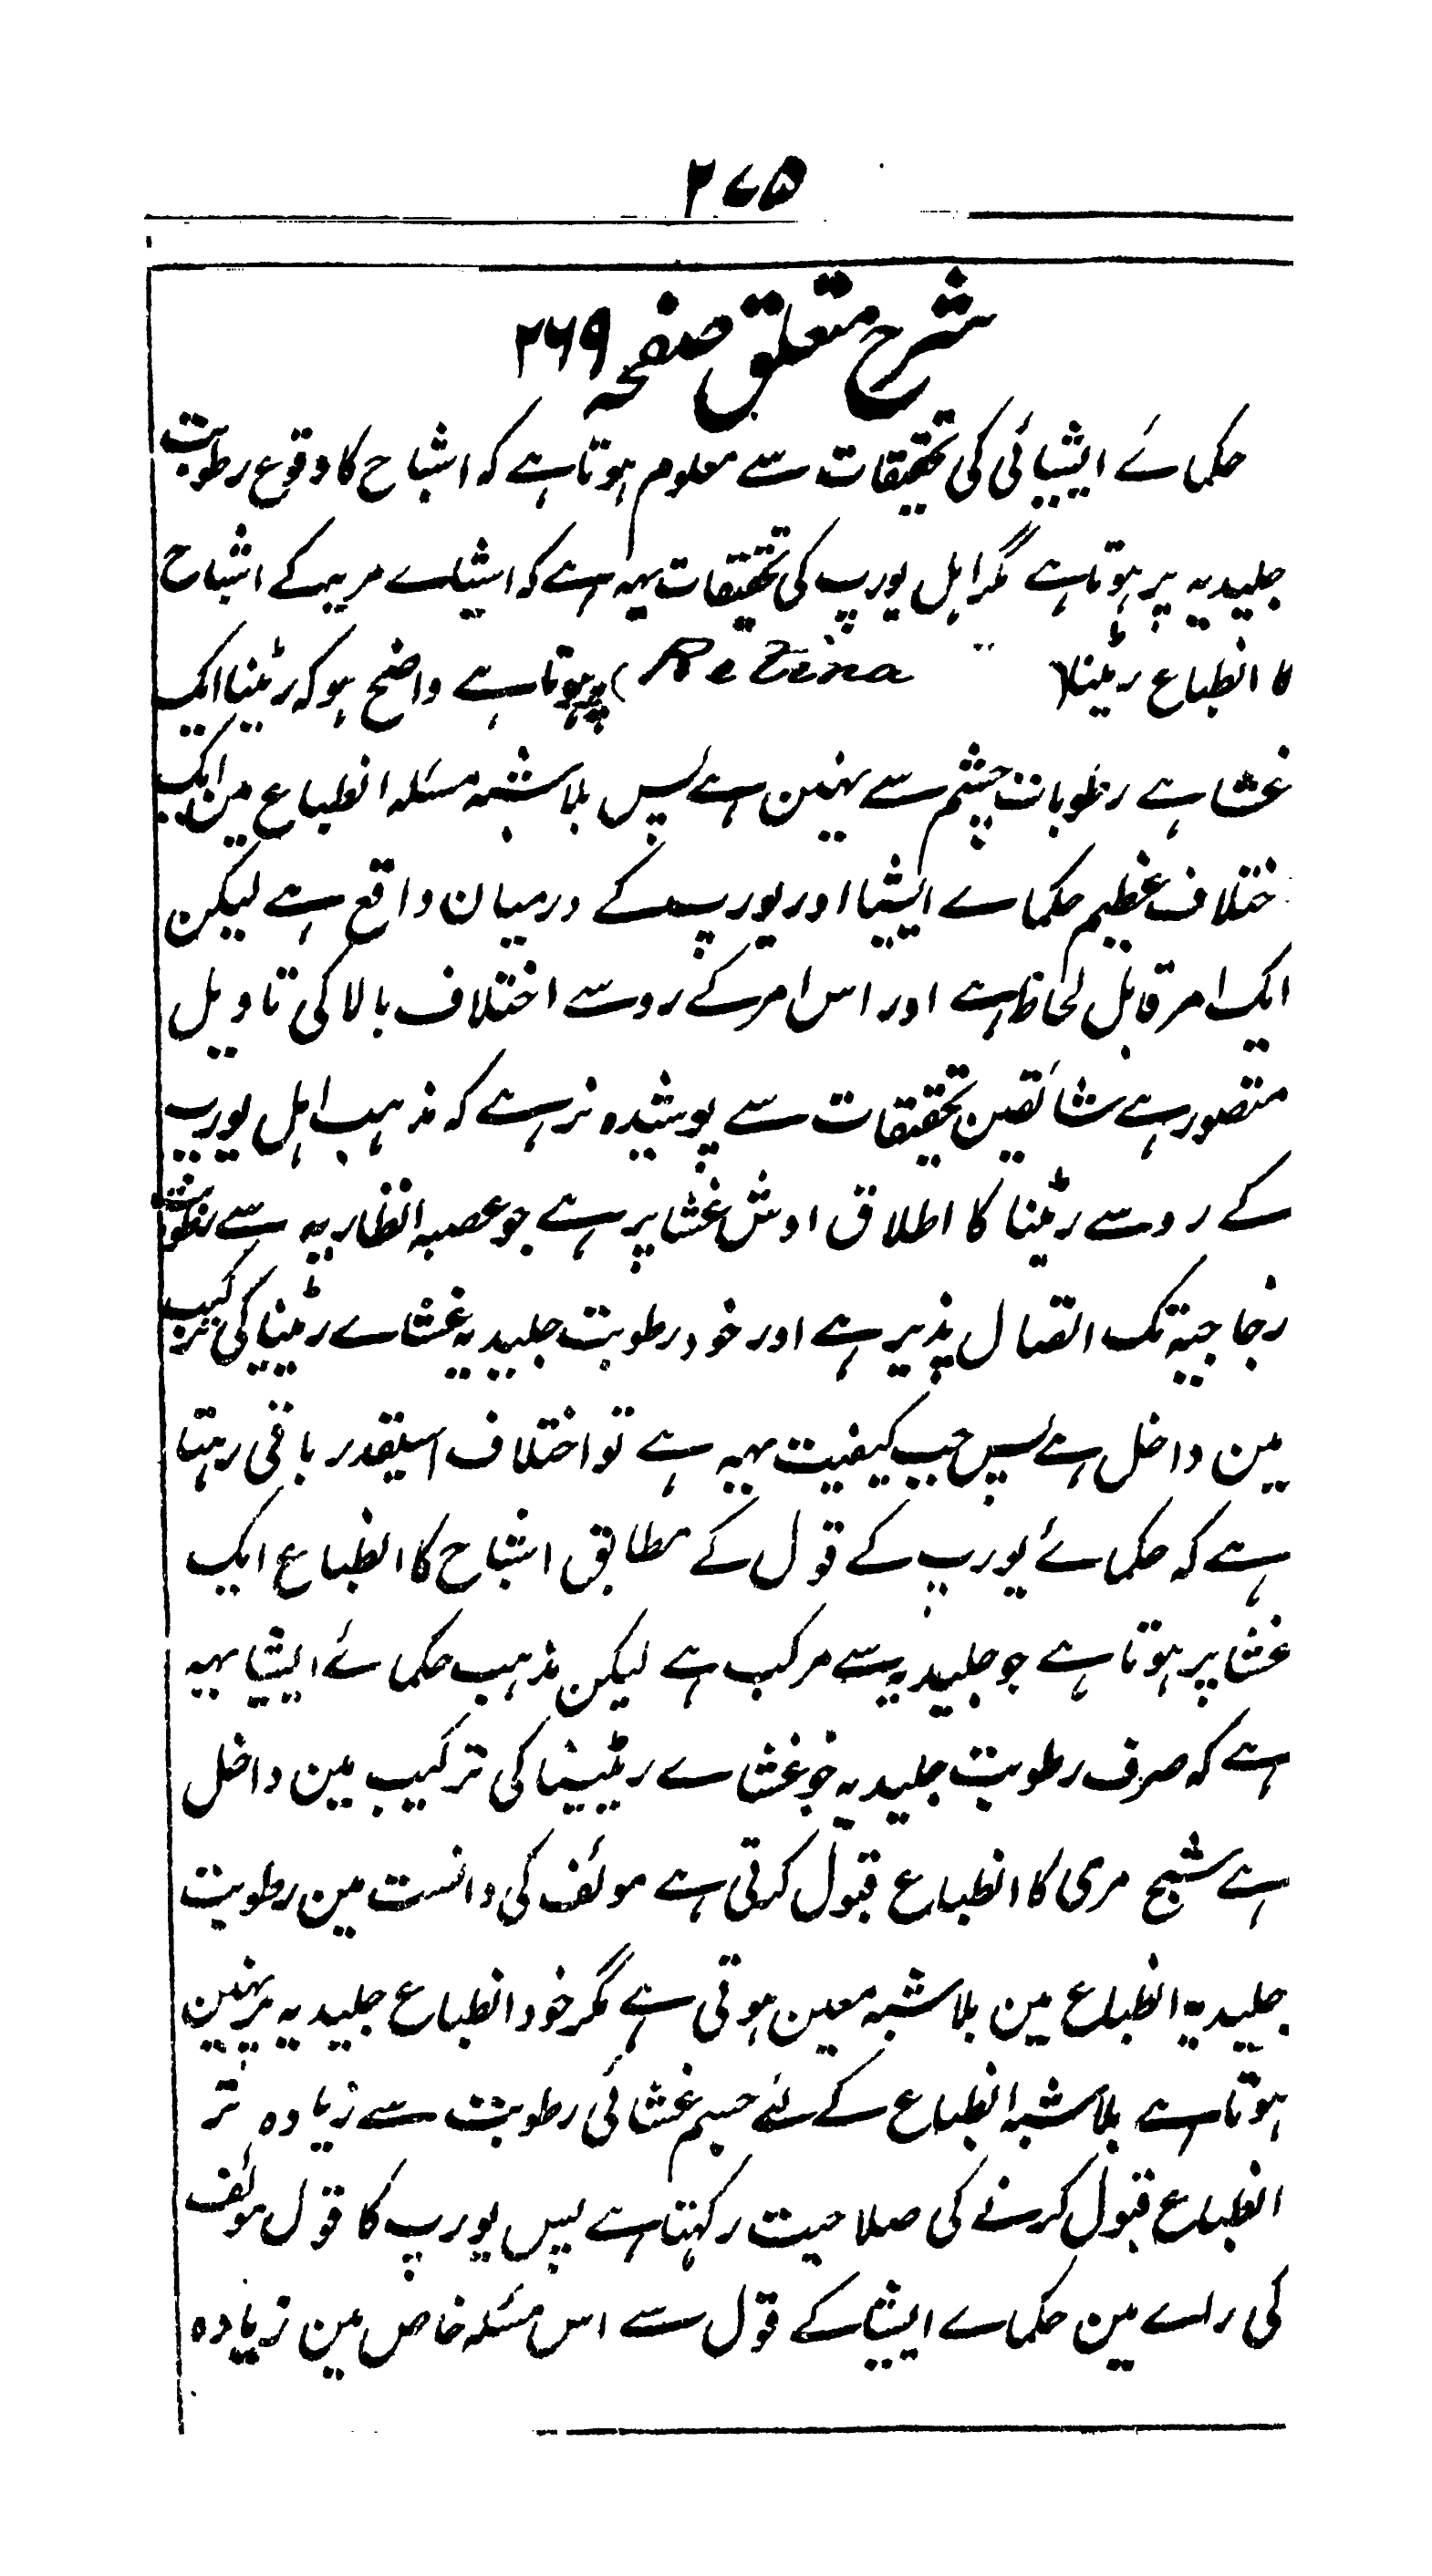 ۲۷۵
شرح متعلق صفحہ ۲۶۹
حکمائے ایشیائی کی تحقیقات سے معلوم ہوتا ہے کہ اشباح کا وقوع رطوبت
جلیدیہ پر ہوتا ہے مگر اہل یورپ کی تحقیقات یہہ ہے کہ اشیاے مریہ کے اشباح
کا انطباع رٹینا (Retina) پر ہوتا ہے واضح ہو کہ رٹینا ایک
غشا ہے رطوبات چشم سے نہین ہے پس بلا شبہہ مسئلہ انطباع مین ایک
ختلاف عظیم حکماے ایشیا اور یورپ کے درمیان واقع ہے لیکن
ایک امر قابل لحاظ ہے اور اس امر کے رو سے اختلاف بالا کی تاویل
متصور ہے شائقین تحقیقات سے پوشیدہ نرہے کہ مذہب اہل یورپ
کے رو سے رٹینا کا اطلاق اوس غشا پر ہے جو عصبہ انظاریہ سے رطوبت
زجاجیۃ تک اتصال پذیر ہے اور خود رطوبت جلیدیہ غشاے رٹینا کی ترکیب
مین داخل ہے پس جب کیفیت یہہ ہے تو اختلاف اسیقدر باقی رہتا
ہے کہ حکمائے یورپ کے قول کے مطابق اشباح کا انطباع ایک
غشا پر ہوتا ہے جو جلیدیہ سے مرکب ہے لیکن مذہب حکمائے ایشیا یہہ
ہے کہ صرف رطوبت جلیدیہ جو غشاے ریٹینا کی ترکیب مین داخل
ہے شبح مری کا انطباع قبول کرتی ہے مولف کی دانست مین رطوبت
جلیدیہ انطباع مین بلا شبہ معین ہوتی ہے مگر خود انطباع جلیدیہ پر نہین
ہوتا ہے بلا شبہ انطباع کے لئے جسم غشائی رطوبت سے زیادہ تر
انطباع قبول کرنے کی صلاحیت رکہتا ہے پس یورپ کا قول مولف
کی راے مین حکماے ایشیا کے قول سے اس مسئلہ خاص مین زیادہ